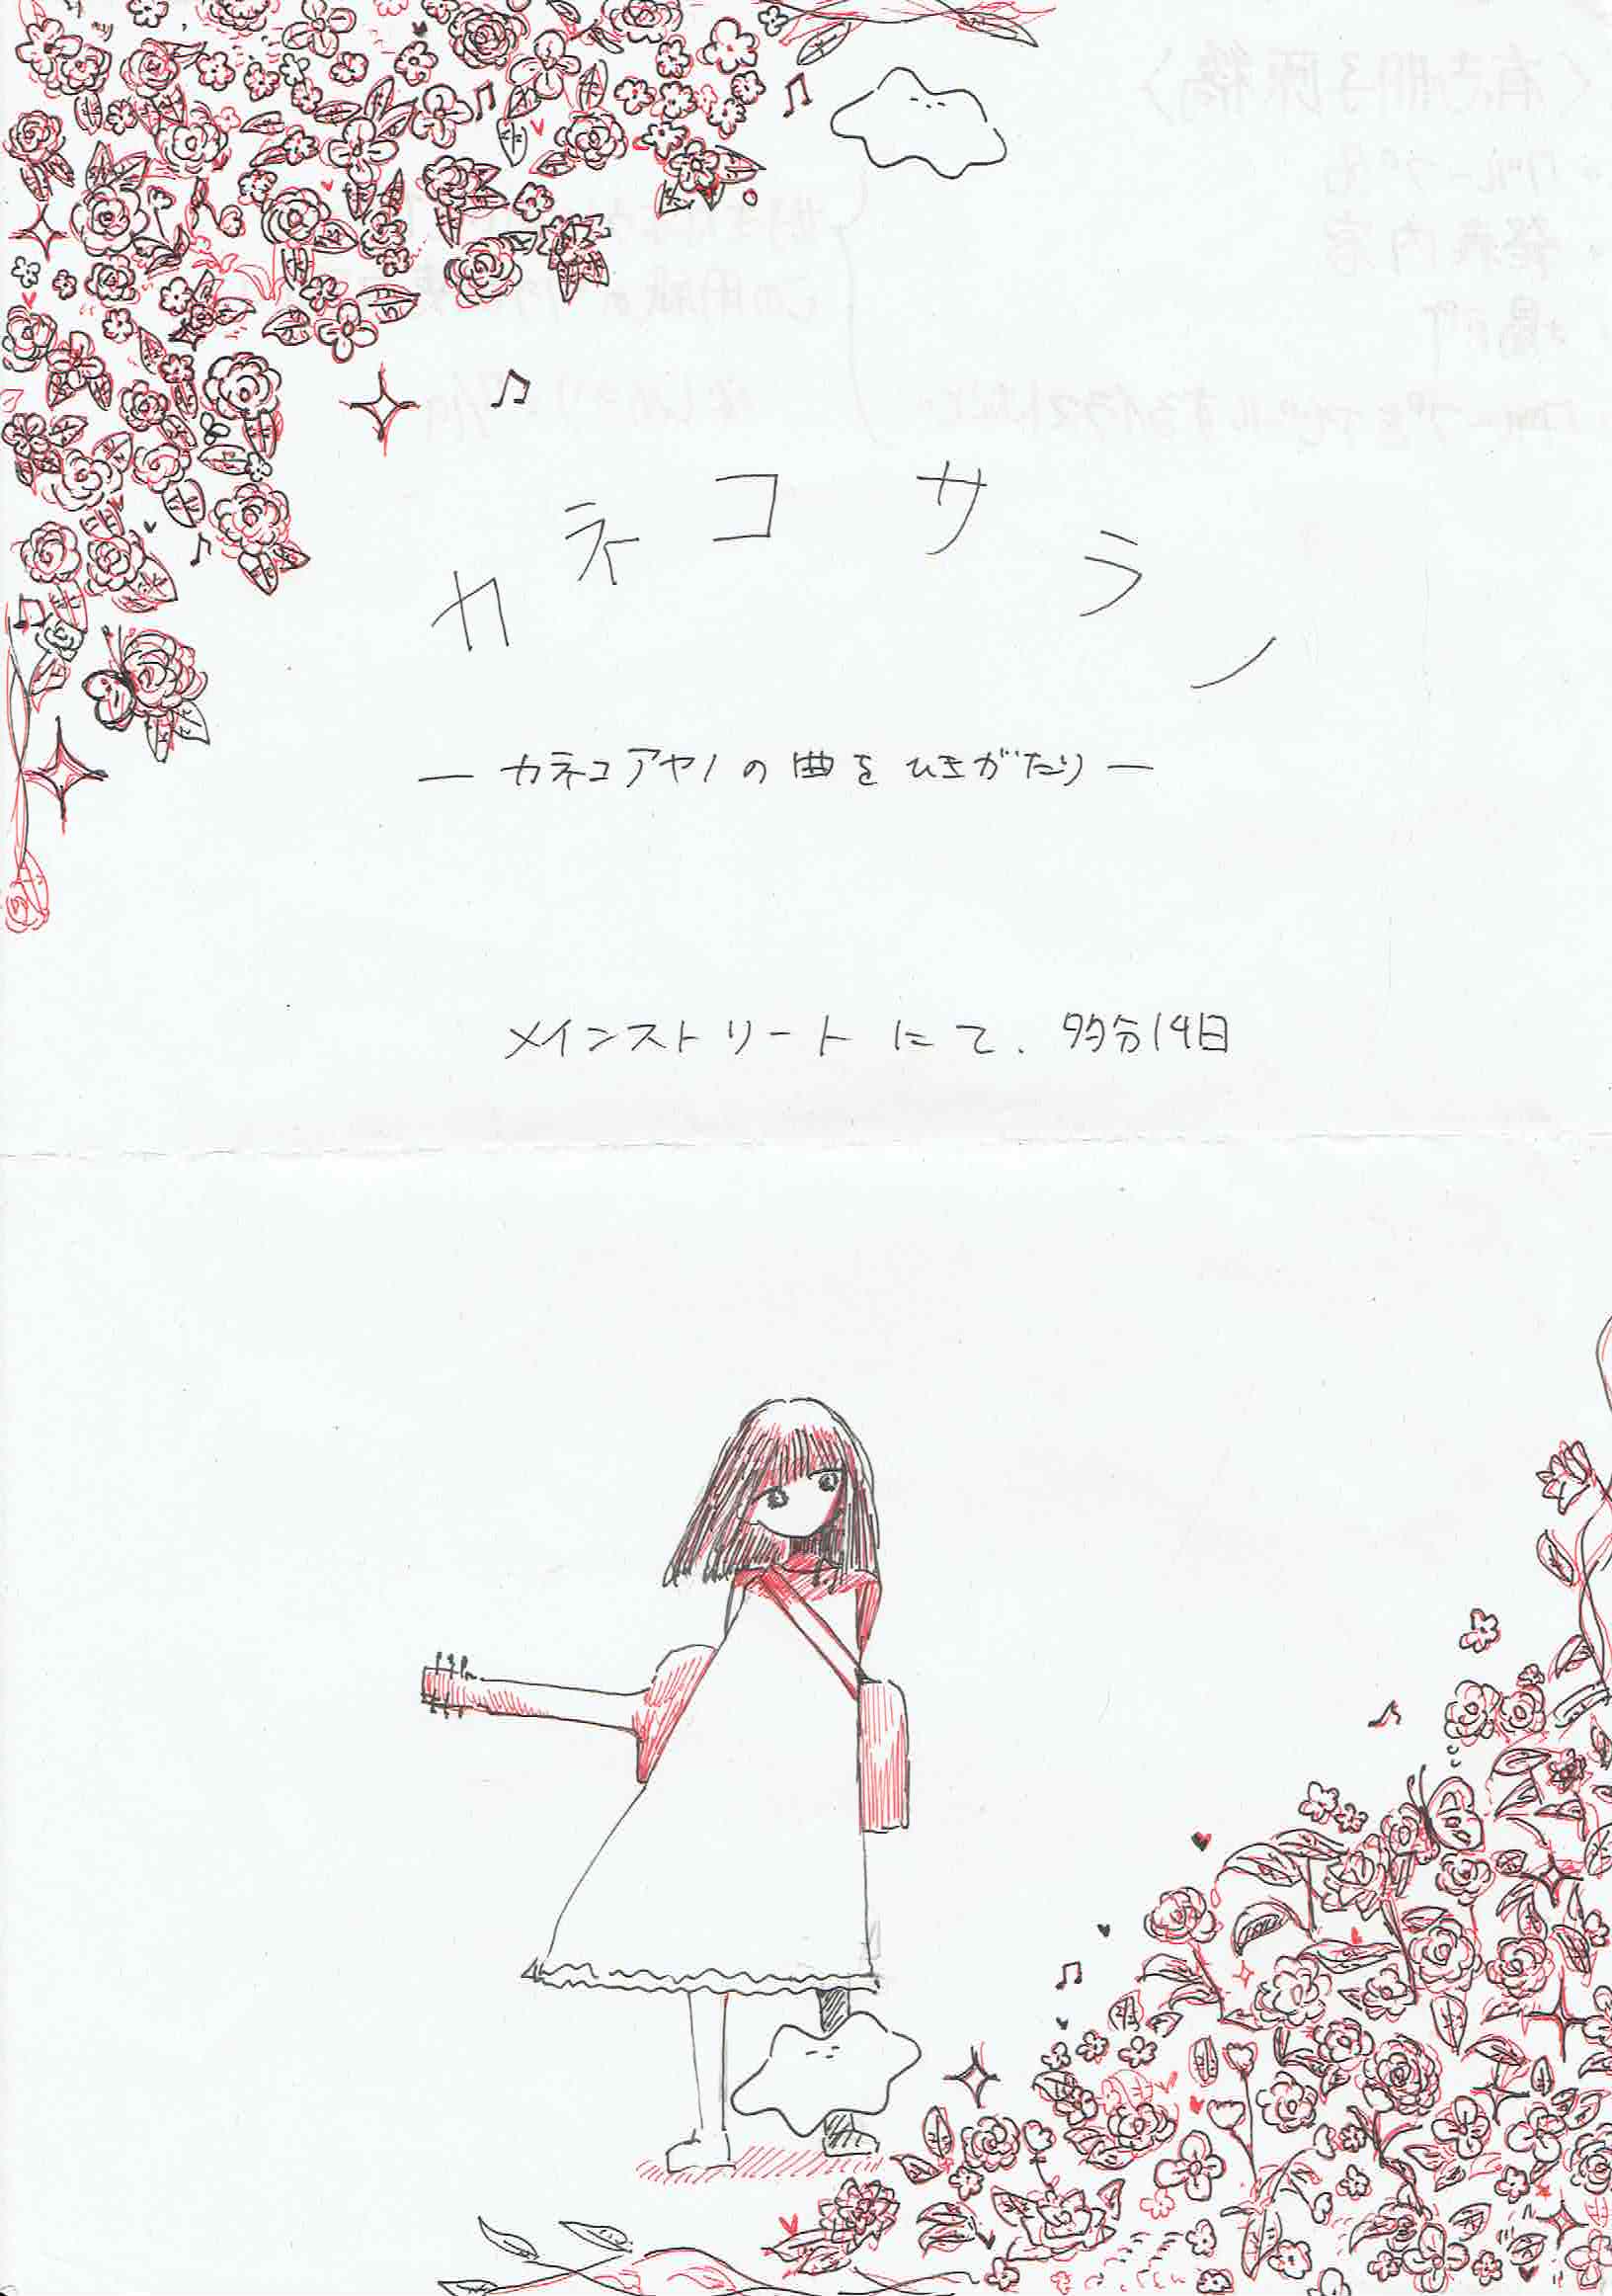 カネコサラノ
— カネコアヤノの曲をひきがたり —
メインストリートにて. 多分14日